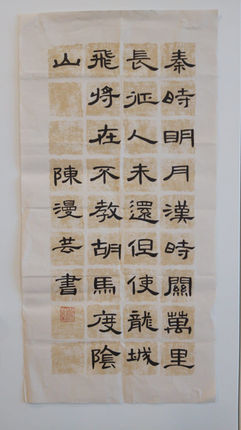 秦時明月漢時關萬里
長征人未還但使龍城
飛將在不教胡馬度陰
山
陳漫芸書